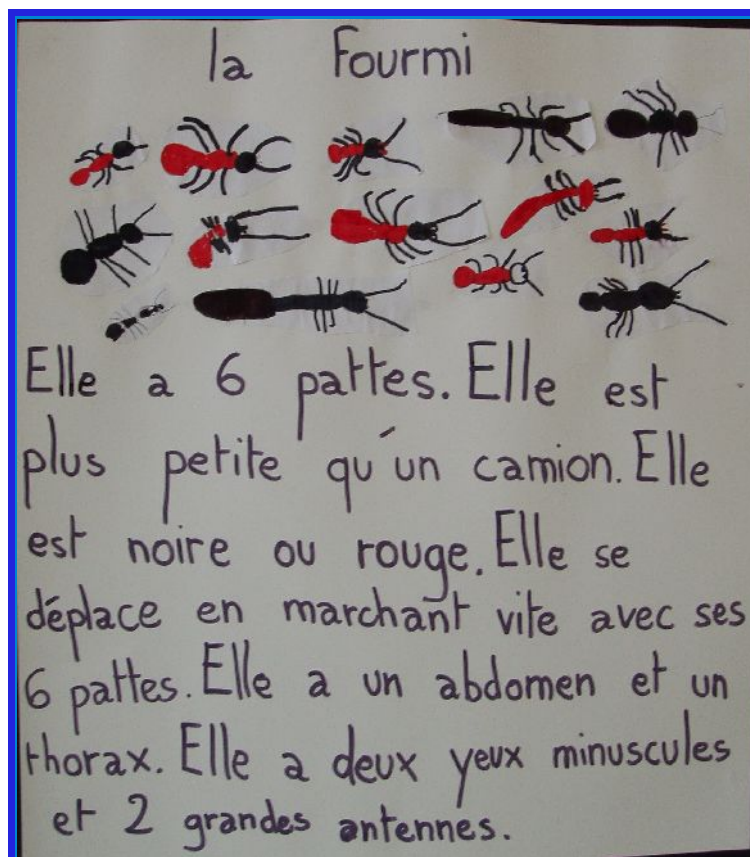 la Fourmi
Elle a 6 pattes. Elle est
plus petite qu'un camion. Elle
est noire ou rouge. Elle se
déplace en marchant vite avec ses
6 pattes. Elle a un abdomen et un
thorax. Elle a deux yeux minuscules
et 2 grandes antennes.